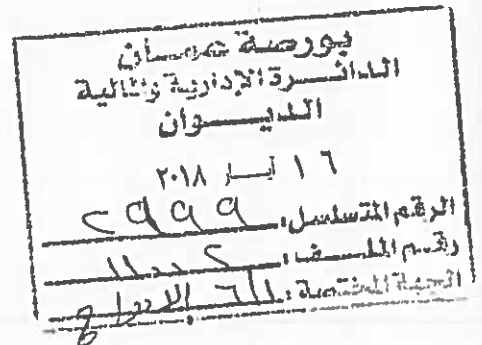 بورصة عمان
الدائرة الإدارية والمالية
الديوان
١٦ أيار ٢٠١٨
الرقم المتسلسل: ٢٩٩٩
رقم الملف:
الجهة المختصة: الإدراج